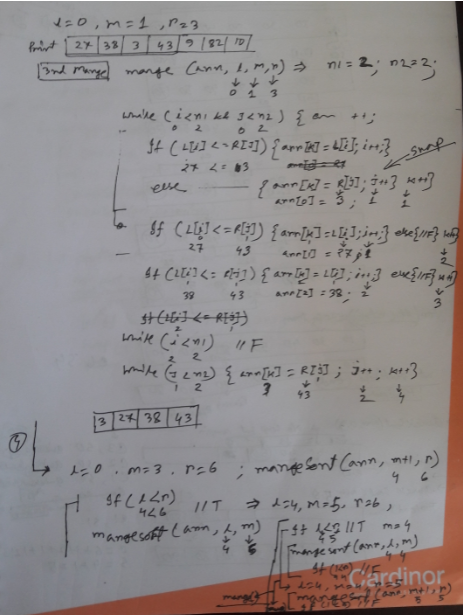 l=0, m=1, r=3
Print 27 38 3 43 9 82 10
3nd Marge marge (arr, l, m, r) ⇒ n1=2; n2=2;
0 1 3
while (i<n1 && j<n2) {
0 2 0 2
If (L[i]<=R[j]) {arr[k]=L[i]; i++;}
27 <= 3
swap
else {arr[k]=R[j]; j++} k++}
arr[0]=3; 1 1
If (L[i]<=R[j]) {arr[k]=L[i]; i++;} else{//F} k++}
27 43 arr[1]=27; 1 2
If (L[i]<=R[j]) {arr[k]=L[i]; i++;} else{//F} k++}
38 43 arr[2]=38; 2 3
If (L[i]<=R[j])
2 1
while (i<n1) //F
2 2
while (j<n2) {arr[k]=R[j]; j++; k++}
1 2 3 43 2 4
3 27 38 43
4
l=0, m=3, r=6; margesort(arr, m+1, r)
4 6
If (l<r) //T ⇒ l=4, m=5, r=6,
4<6
If l<r //T m=4
4 5
margesort(arr, l, m)
4 5
margesort(arr, l, m)
4 4
If //F
l=4, m=4, r=5
margesort(arr, m+1, r)
5 5
Cardinor